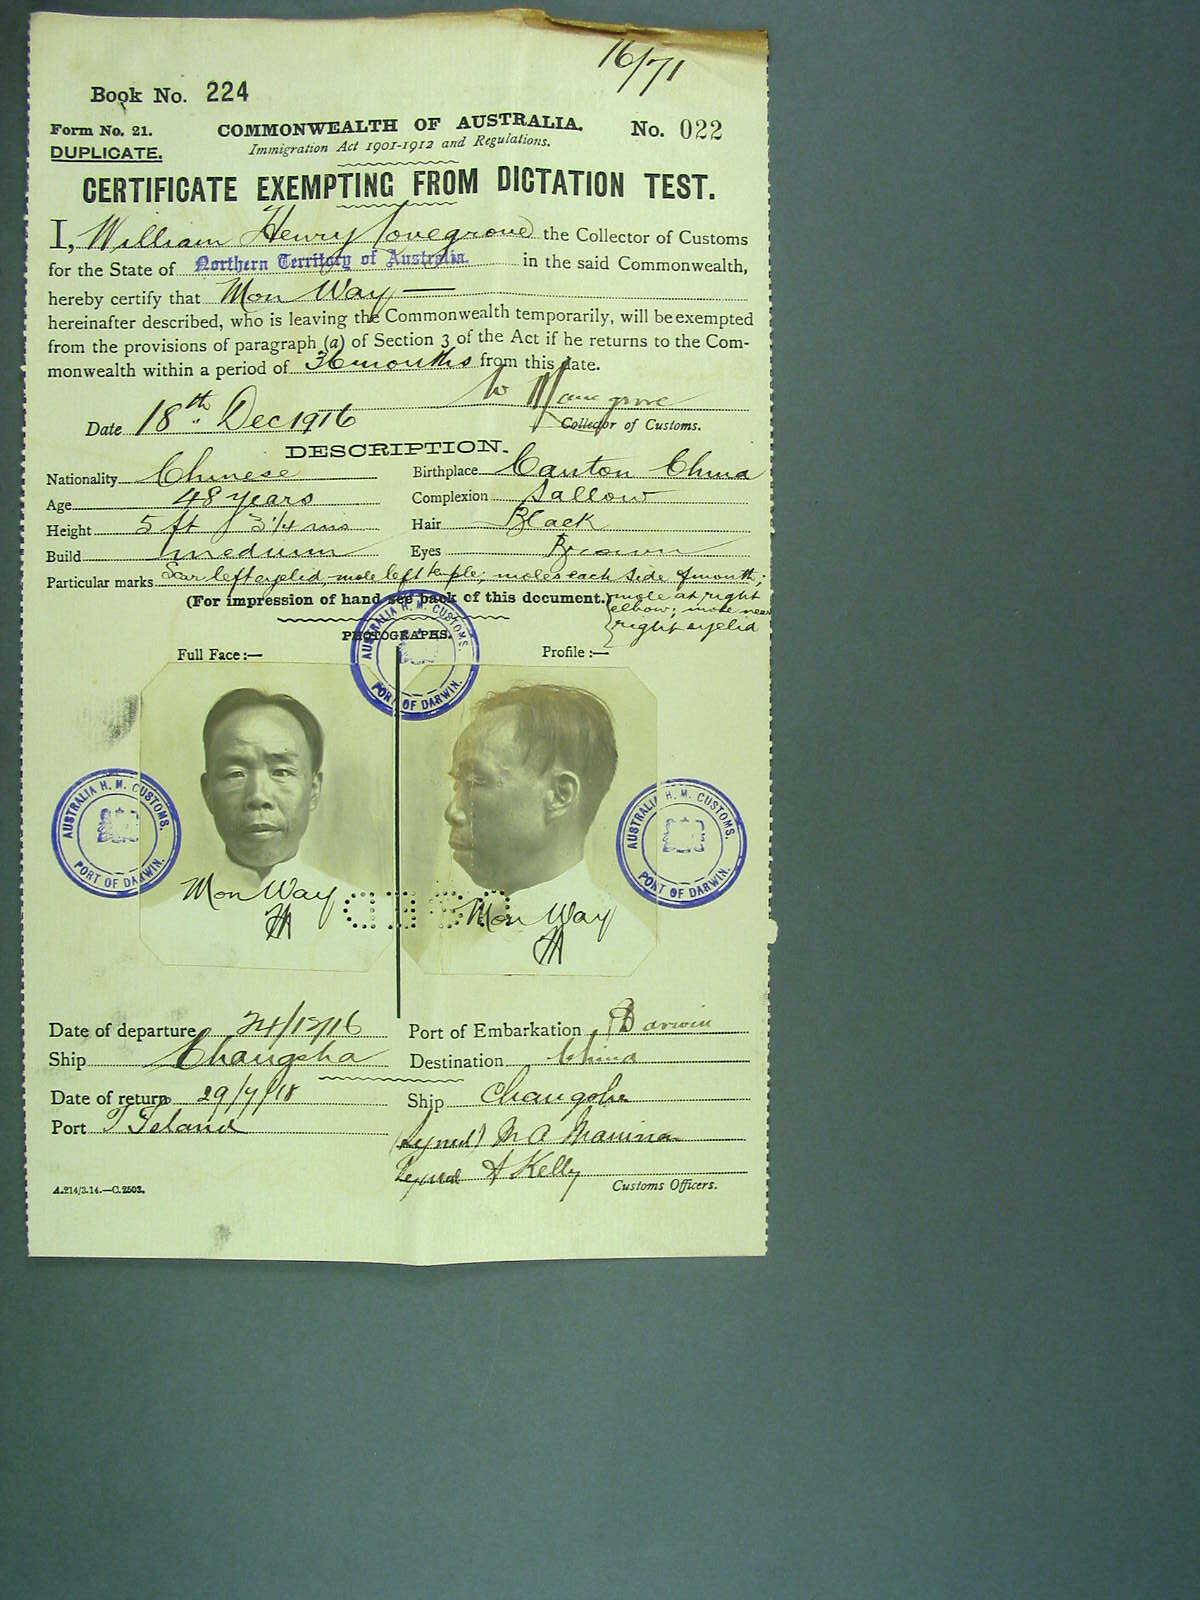 16/71
Book No. 224
Form No. 21. COMMONWEALTH OF AUSTRALIA. No. 022
DUPLICATE. Immigration Act 1901-1912 and Regulations.
CERTIFICATE EXEMPTING FROM DICTATION TEST.
I, William Henry Lovegrove the Collector of Customs
for the State of Northern Territory of Australia. in the said Commonwealth,
hereby certify that Mon Way
hereinafter described, who is leaving the Commonwealth temporarily, will be exempted
from the provisions of paragraph (a) of Section 3 of the Act if he returns to the Com-
monwealth within a period of 36 months from this date.
W H Lovegrove
Date 18th Dec 1916 Collector of Customs.
DESCRIPTION.
Nationality Chinese Birthplace Canton China
Age 48 years Complexion Sallow
Height 5 ft 3 1/4 ins Hair Black
Build medium Eyes Brown
Particular marks Scar left eyelid mole left temple; moles each side of mouth;
(For impression of hand see back of this document.) mole at right
elbow; mole near
right eyelid
PHOTOGRAPHS.
Full Face:— Profile:—
AUSTRALIA H. M. CUSTOMS. PORT OF DARWIN.
AUSTRALIA H. M. CUSTOMS. PORT OF DARWIN.
AUSTRALIA H. M. CUSTOMS. PORT OF DARWIN.
Mon Way Mon Way
Date of departure 24/12/16 Port of Embarkation Darwin
Ship Changsha Destination China
Date of return 29/7/18 Ship Changsha
Port T Island (Signed) M A
Signed A Kelly
A.214/3.14.—C.2503. Customs Officers.